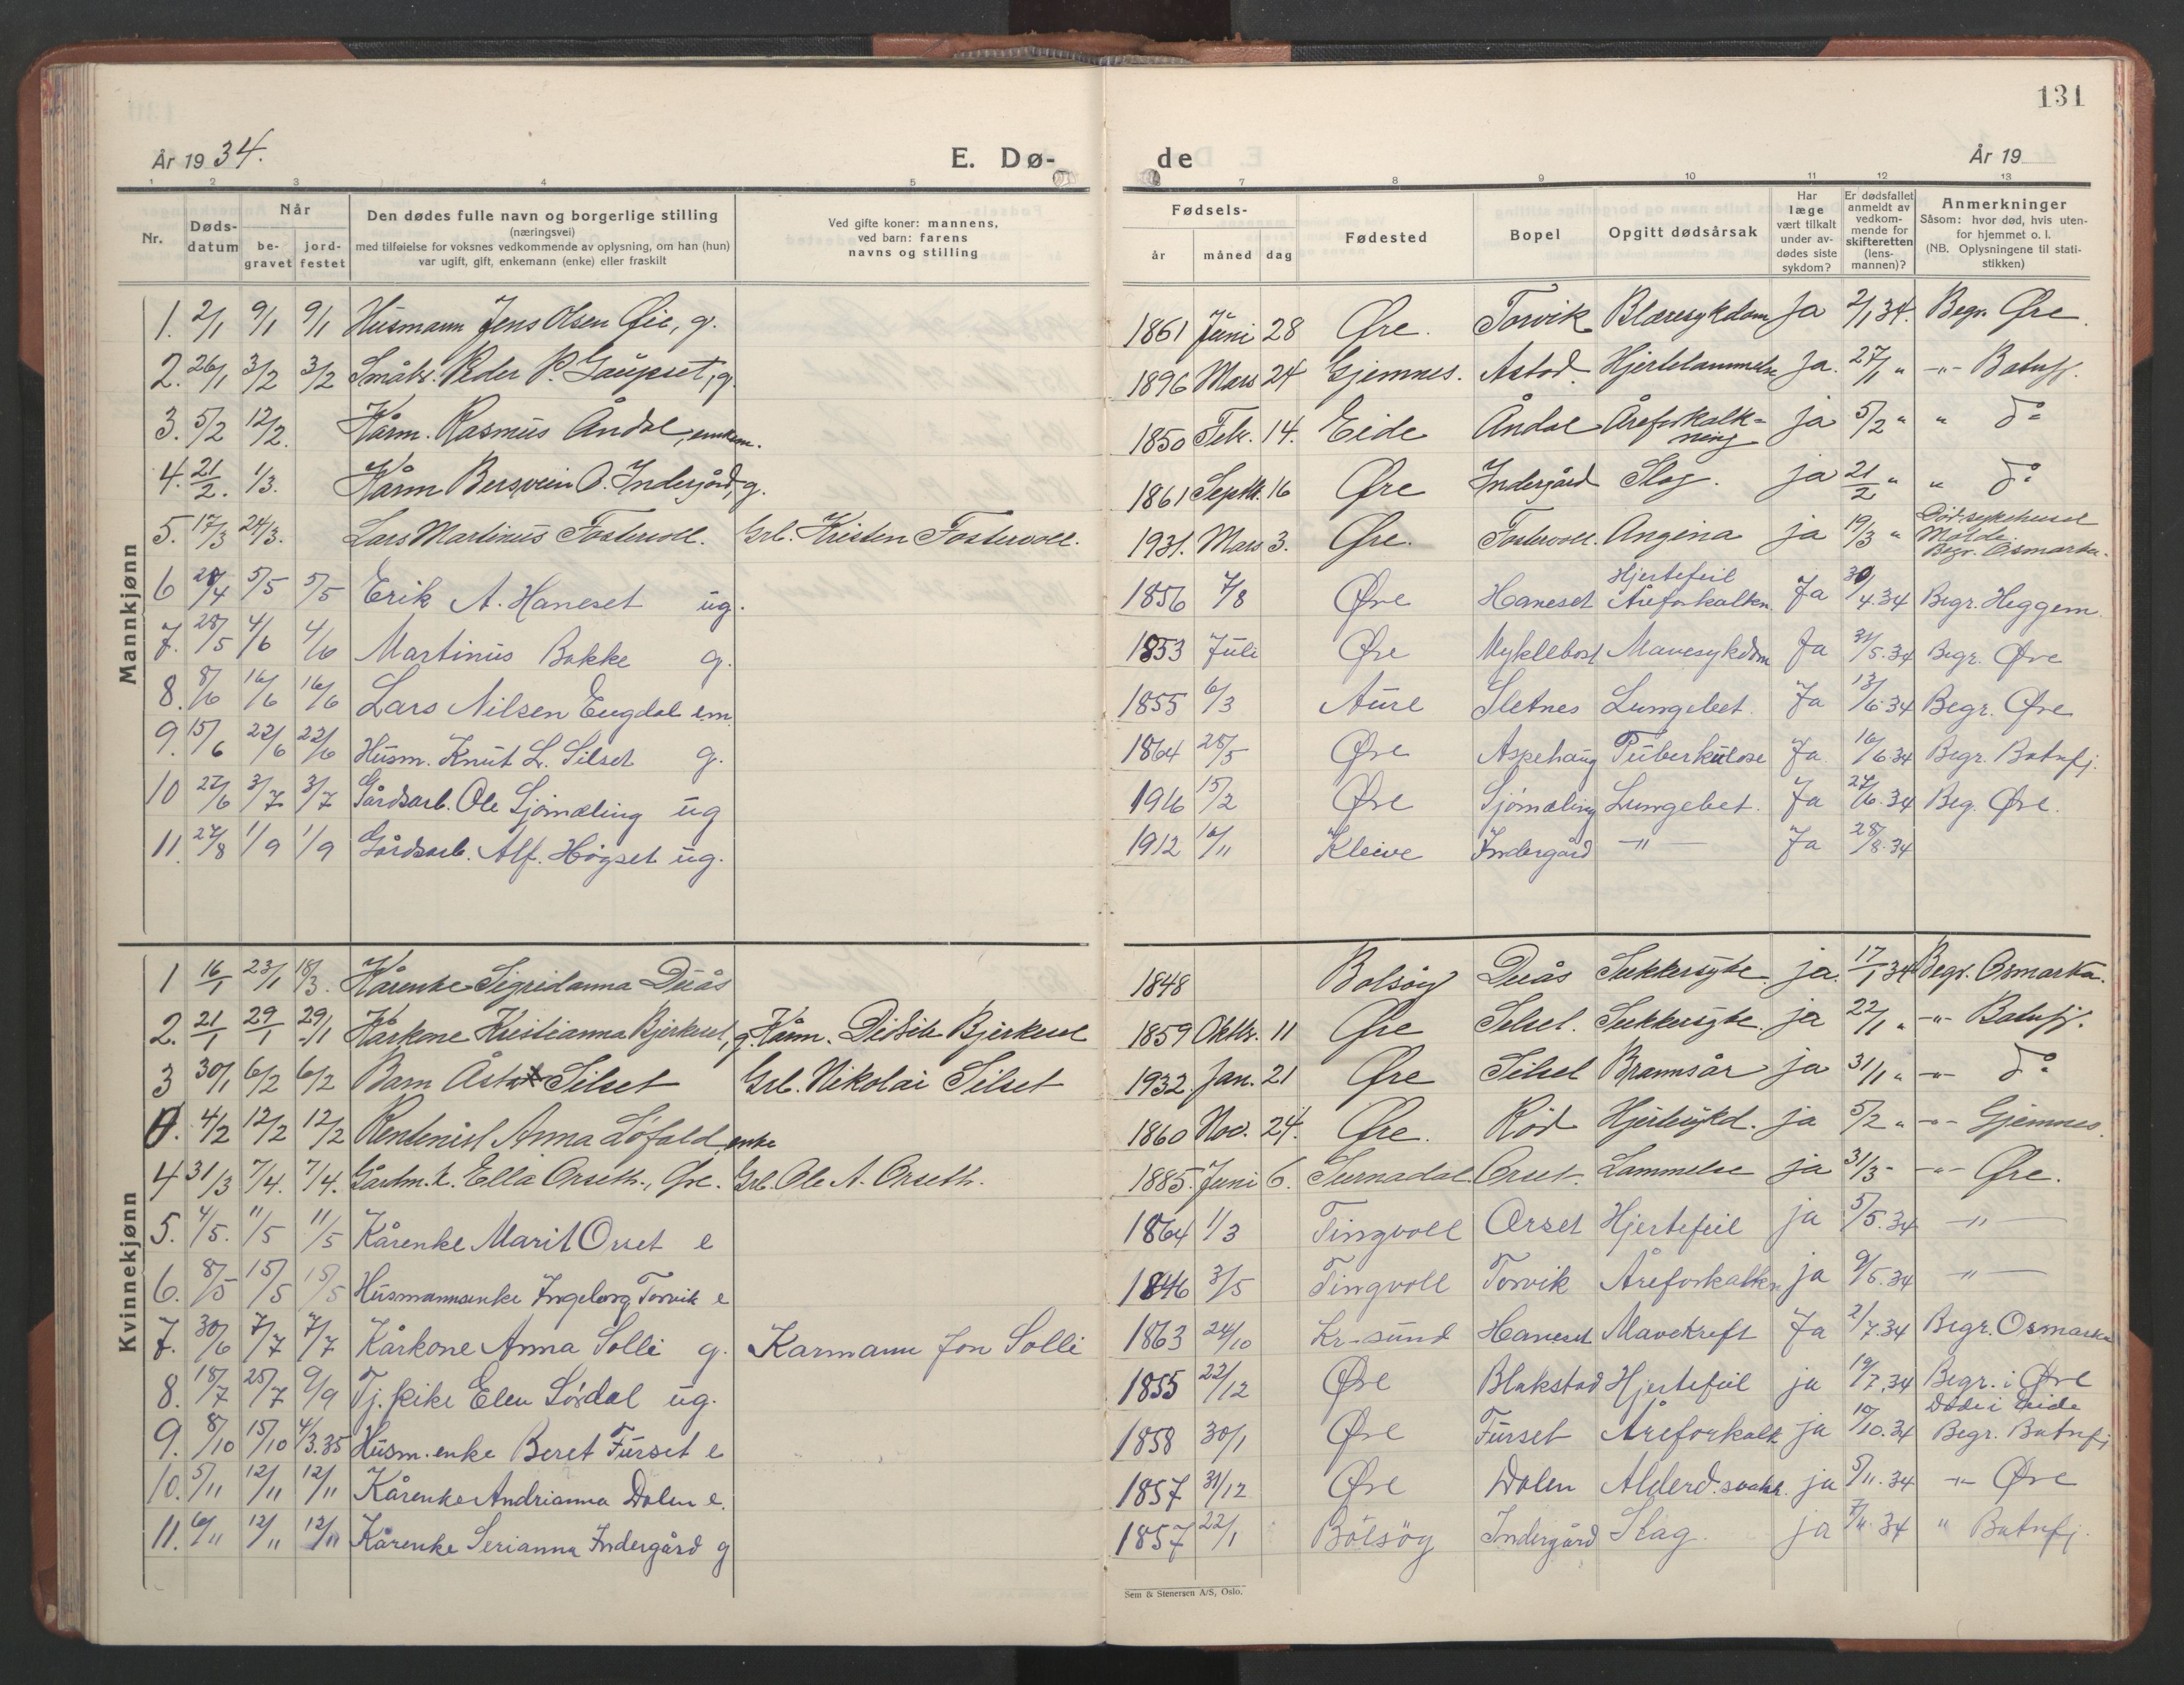 131
År 19 34.
E. Dø-
de
År 19
1 2 3 4 5 6 7 8 9 10 11 12 13
Nr.
Døds-
datum
Når
be-
gravet
jord-
festet
Den dødes fulle navn og borgerlige stilling
(næringsvei)
med tilføielse for voksnes vedkommende av oplysning, om han (hun)
var ugift, gift, enkemann (enke) eller fraskilt
Ved gifte koner: mannens,
ved barn: farens
navns og stilling
Fødsels-
år måned dag
Fødested
Bopel
Opgitt dødsårsak
Har
læge
vært tilkalt
under av-
dødes siste
sykdom?
Er dødsfallet
anmeldt av
vedkom-
mende for
skifteretten
(lens-
mannen)?
Anmerkninger
Såsom: hvor død, hvis uten-
for hjemmet o. l.
(NB. Oplysningene til stati-
stikken)
Mannkjønn
1. 2/1 9/1 9/1 Husmann Jens Olsen Øie, g. 1861 Juni 28 Øre. Torvik Blæresykdom Ja 2/1 34. Begr. Øre.
2. 26/1 3/2 3/2 Småbr. Peder P. Gaupset, g. 1896 Mars 24 Gjemnes. Astad. Hjertelammelse Ja. 27/1 " -"- Batnfj.
3. 5/2 12/2. Kårm. Rasmus Åndal, enkem. 1850 Febr. 14. Eide Åndal Åreforkalk-
ning ja 5/2 " " do
4. 21/2. 1/3. Kårm Bersvein O. Indergård, g. 1861 Septbr. 16 Øre Indergård Slag. ja 21/2 " " do
5. 17/3 24/3. Lars Martinus Fostervoll. Grb. Kristen Fostervoll. 1931. Mars 3. Øre. Fostervoll. Angina ja 19/3 " Død sykehuset
Molde.
Begr. Osmarka.
6 28/4 5/5 5/5 Erik A. Haneset ug. 1856 7/8 Øre Haneset Hjertefeil
Åreforkalkn. Ja 30/4.34 Begr. Heggem.
7. 28/5 4/6 4/6 Martinus Bakke g. 1853 Juli Øre Myklebost Mavesykdom Ja 31/5.34 Begr. Øre
8. 8/6 16/6 16/6 Lars Nilsen Engdal em. 1855 6/3 Aure Sletnes Lungebet. Ja 13/6.34 Begr. Øre
9. 15/6 22/6 22/6 Husm. Knut L. Silset g. 1864 28/5 Øre Aspehaug Tuberkulose Ja 16/6.34 Begr. Batnfj.
10 27/6 3/7 3/7 Gårdsarb. Ole Sjömæling ug 1916 15/2 Øre Sjömæling Lungebet. Ja 27/6.34 Beg. Øre.
11. 27/8 1/9 1/9 Gårdsarb. Alf. Högset ug. 1912 16/11 Kleive Indergård -"- Ja 28/8.34
Kvinnekjønn
1 16/1 23/1 18/3. Kårenke Sigridanna Duås 1848 Bolsöy Duås Sukkersyke ja. 17/1 34 Begr. Osmarka.
2. 21/1 29/1 29/1 Kårkone Kristianna Bjerkeset, g. Kårm. Didrik Bjerkeset 1859 Oktbr. 11 Øre Silset. Sukkersyke. ja 22/1 " -"- Batnfj.
3 30/1 6/2 6/2 Barn Åsta Silset Grb. Nikolai Silset 1932. Jan. 21 Øre Silset Brannsår ja 31/1 " -"- do
4/2 12/2 12/2 Rentenist Anna Löfald, enke 1860 Nov. 24. Øre. Röd Hjertesykd. ja 5/2 " -"- Gjemnes.
4 31/3 7/4. 7/4. Gårdm.k. Ella Orseth., Øre. Grb. Ole A. Orseth. 1885. Juni 6. Surnadal. Orset. Lammelse ja 31/3 - -"- Øre.
5. 4/5. 11/5 11/5 Kårenke Marit Orset e 1864 1/3 Tingvoll Orset Hjertefeil ja 5/5.34 -"-
6. 8/5 15/5 15/5 Husmannsenke Ingeborg Torvik e 1846 3/5 Tingvoll Torvik Åreforkalkn. ja 9/5.34 -"-
7. 30/6 7/7 7/7 Kårkone Anna Solli g. Karmann Jon Solli 1863 24/10 Kr-sund Haneset Mavekreft Ja 2/7.34 Begr. Osmarka
8. 18/7 25/7 9/9 Tj. pike Elen Lørdal ug. 1855 22/12 Øre Blakstad Hjertefeil ja 19/7.34 Begr. i Øre
Døde i Eide
9. 8/10 15/10 4/3.35 Husm.enke Beret Furset e 1858 30/1 Øre Furset Åreforkalk ja 10/10.34 Begr. Batnfj
10. 5/11 12/11 12/11 Kårenke Andrianna Dalen e. 1857 31/12 Øre Dalen Alderd.svakh. ja 5/11.34 -"- Øre
11. 6/11 12/11 12/11 Kårenke Serianna Indergård g 1857 22/1 Bölsöy Indergård Slag. ja 7/11.34 " Batnfj.
Sem & Stenersen A/S, Oslo.